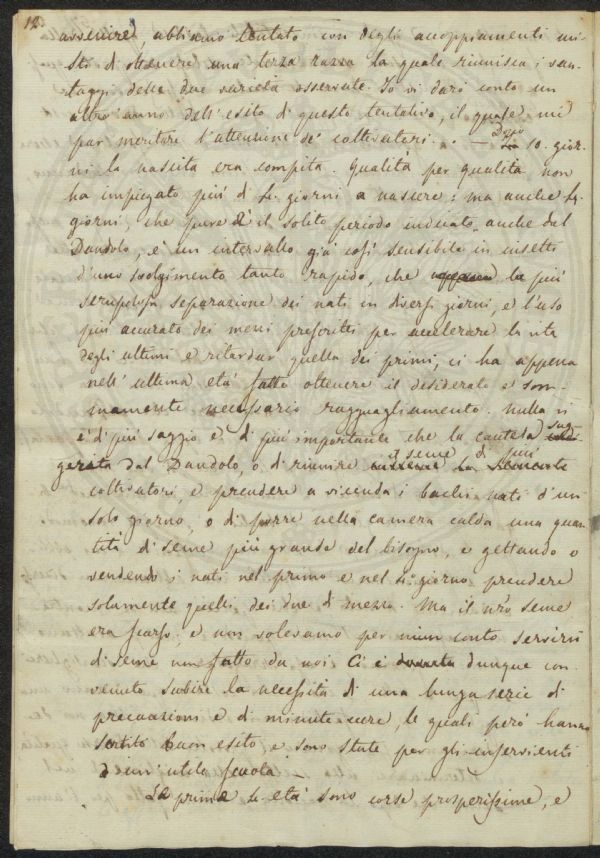 12.
avvenire, abbiamo tentato con degli accoppiamenti mi-
sti di ottenere una terza razza la quale riunisca i van-
taggi delle due varietà osservate. Io vi darò conto un
altro anno dell'esito di questo tentativo, il quale mi
par meritare l'attenzione de' coltivatori. — Dopo 10. gior-
ni la nascita era compita. Qualità per qualità non
ha impiegato più di 4. giorni a nascere: ma anche 4.
giorni, che pure è il solito periodo indicato anche dal
Dandolo, è un intervallo già così sensibile in insetti
d'uno svolgimento tanto rapido, che la più
scrupolosa separazione dei nati in diversi giorni, e l'uso
più accurato dei mezzi prescritti per accelerare la vita
degli ultimi e ritardar quella dei primi, ci ha appena
nell'ultima età fatto ottenere il desiderato e som-
mamente necessario ragguagliamento. Nulla vi
è di più saggio e di più importante che la cautela sug-
gerita dal Dandolo, o di riunire il seme di più
coltivatori, e prendere a vicenda i bachi nati d'un
solo giorno, o di porre nella camera calda una quan
tità di seme più grande del bisogno, e gettando o
vendendo i nati nel primo e nel 4. giorno prendere
solamente quelli dei due di mezzo. Ma il nro seme
era scarso, e non volevamo per niun conto servirci
di seme non fatto da noi. Ci è dunque con-
venuto subire la necessità di una lunga serie di
precauzioni e di minute cure, le quali però hanno
sortito buon esito, e sono state per gli inservienti
d'un'utile scuola. —
Le prime 4. età sono corse prosperissime, e